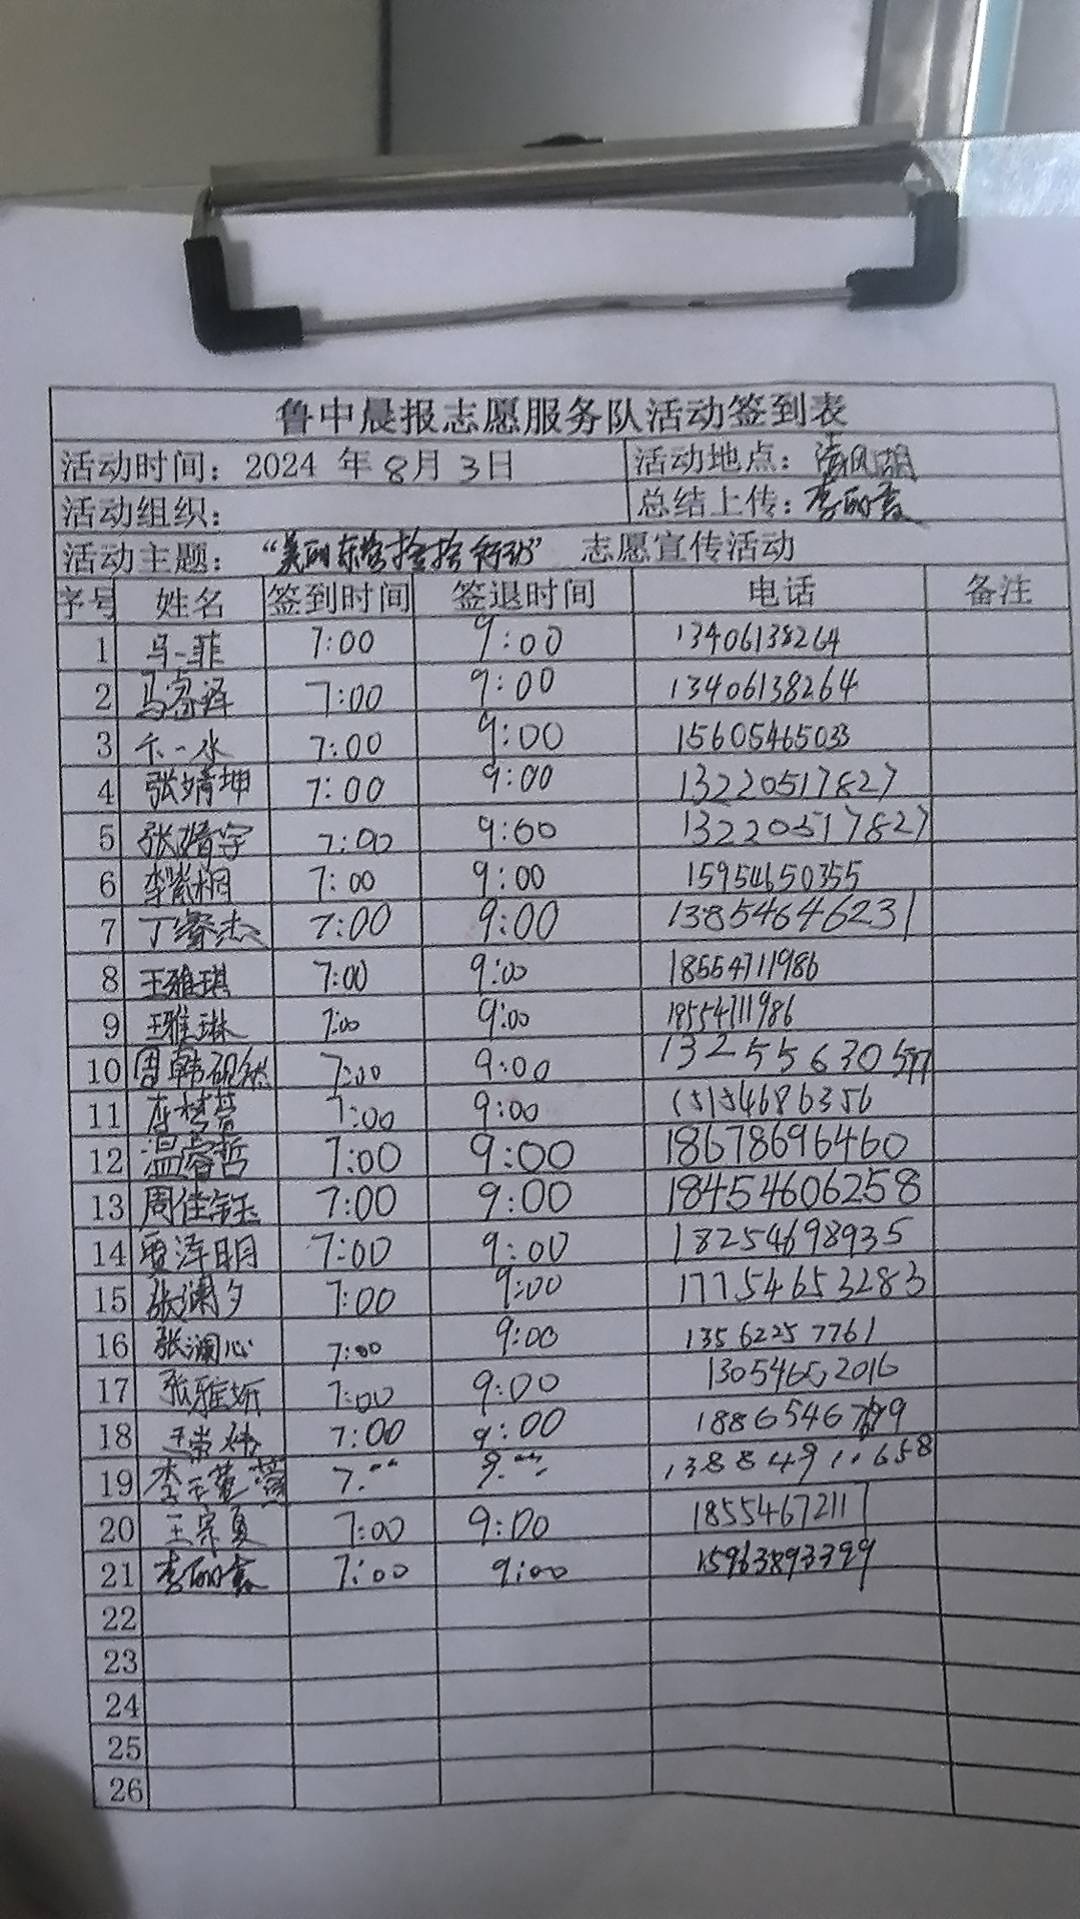 鲁中晨报志愿服务队活动签到表
活动时间：2024 年 8月 3日 活动地点：清风湖
活动组织： 总结上传：李丽霞
活动主题：“美丽东营捡捡行动” 志愿宣传活动
序号 姓名 签到时间 签退时间 电话 备注
1 马一菲 7:00 9:00 13406138264
2 马睿泽 7:00 9:00 13406138264
3 一水 7:00 9:00 15605465033
4 张婧坤 7:00 9:00 13220517827
5 张婧宇 7:00 9:00 13220517827
6 李紫桐 7:00 9:00 15954650355
7 丁睿杰 7:00 9:00 13854646231
8 王雅琪 7:00 9:00 18554711986
9 王雅琳 7:00 9:00 18554711986
10 周韩砚然 7:00 9:00
11 李梦萱 7:00 9:00 15154686356
12 温睿哲 7:00 9:00 18678696460
13 周佳钰 7:00 9:00 18454606258
14 贾泽明 7:00 9:00 18254698935
15 张澜夕 7:00 9:00 17754653283
16 张澜心 7:00 9:00 13562257761
17 张雅妍 7:00 9:00
18 7:00 9:00
19 7:00 9:00
20 王宗夏 7:00 9:00 18554672117
21 李丽霞 7:00 9:00 15963893399
22
23
24
25
26